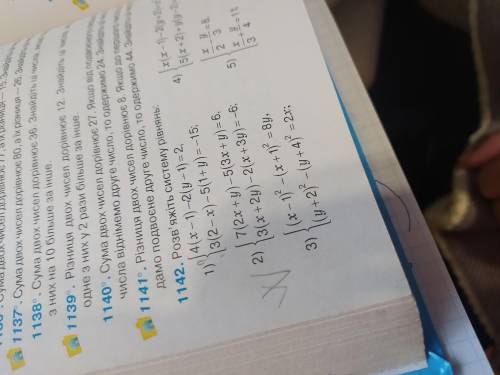 1137°. Сума двох чисел дорівнює 80, а їх різниця — 26. Знайдіть
1138°. Сума двох чисел дорівнює 36. Знайдіть ці числа,
з них на 10 більше за інше.
1139°. Різниця двох чисел дорівнює 12. Знайдіть ці числа,
одне з них у 2 рази більше за інше.
1140°. Сума двох чисел дорівнює 27. Якщо від подвоєного
числа віднімемо друге число, то одержимо 24. Знайдіть
1141°. Різниця двох чисел дорівнює 8. Якщо до першого
дамо подвоєне друге число, то одержимо 44. Знайдіть
1142. Розв'яжіть систему рівнянь:
1) {4(x−1)−2(y−1)=2,
3(2−x)−5(1+y)=−15;
2) {7(2x+y)−5(3x+y)=6,
3(x+2y)−2(x+3y)=−6;
3) {(x−1)²−(x+1)²=8y,
(y+2)²−(y+4)²=2x;
4) {x(x−1)−2(y+
5(x+2)+y(y−2
5) {x/2 − y/3 = 8,
x/3 + y/4 = 1